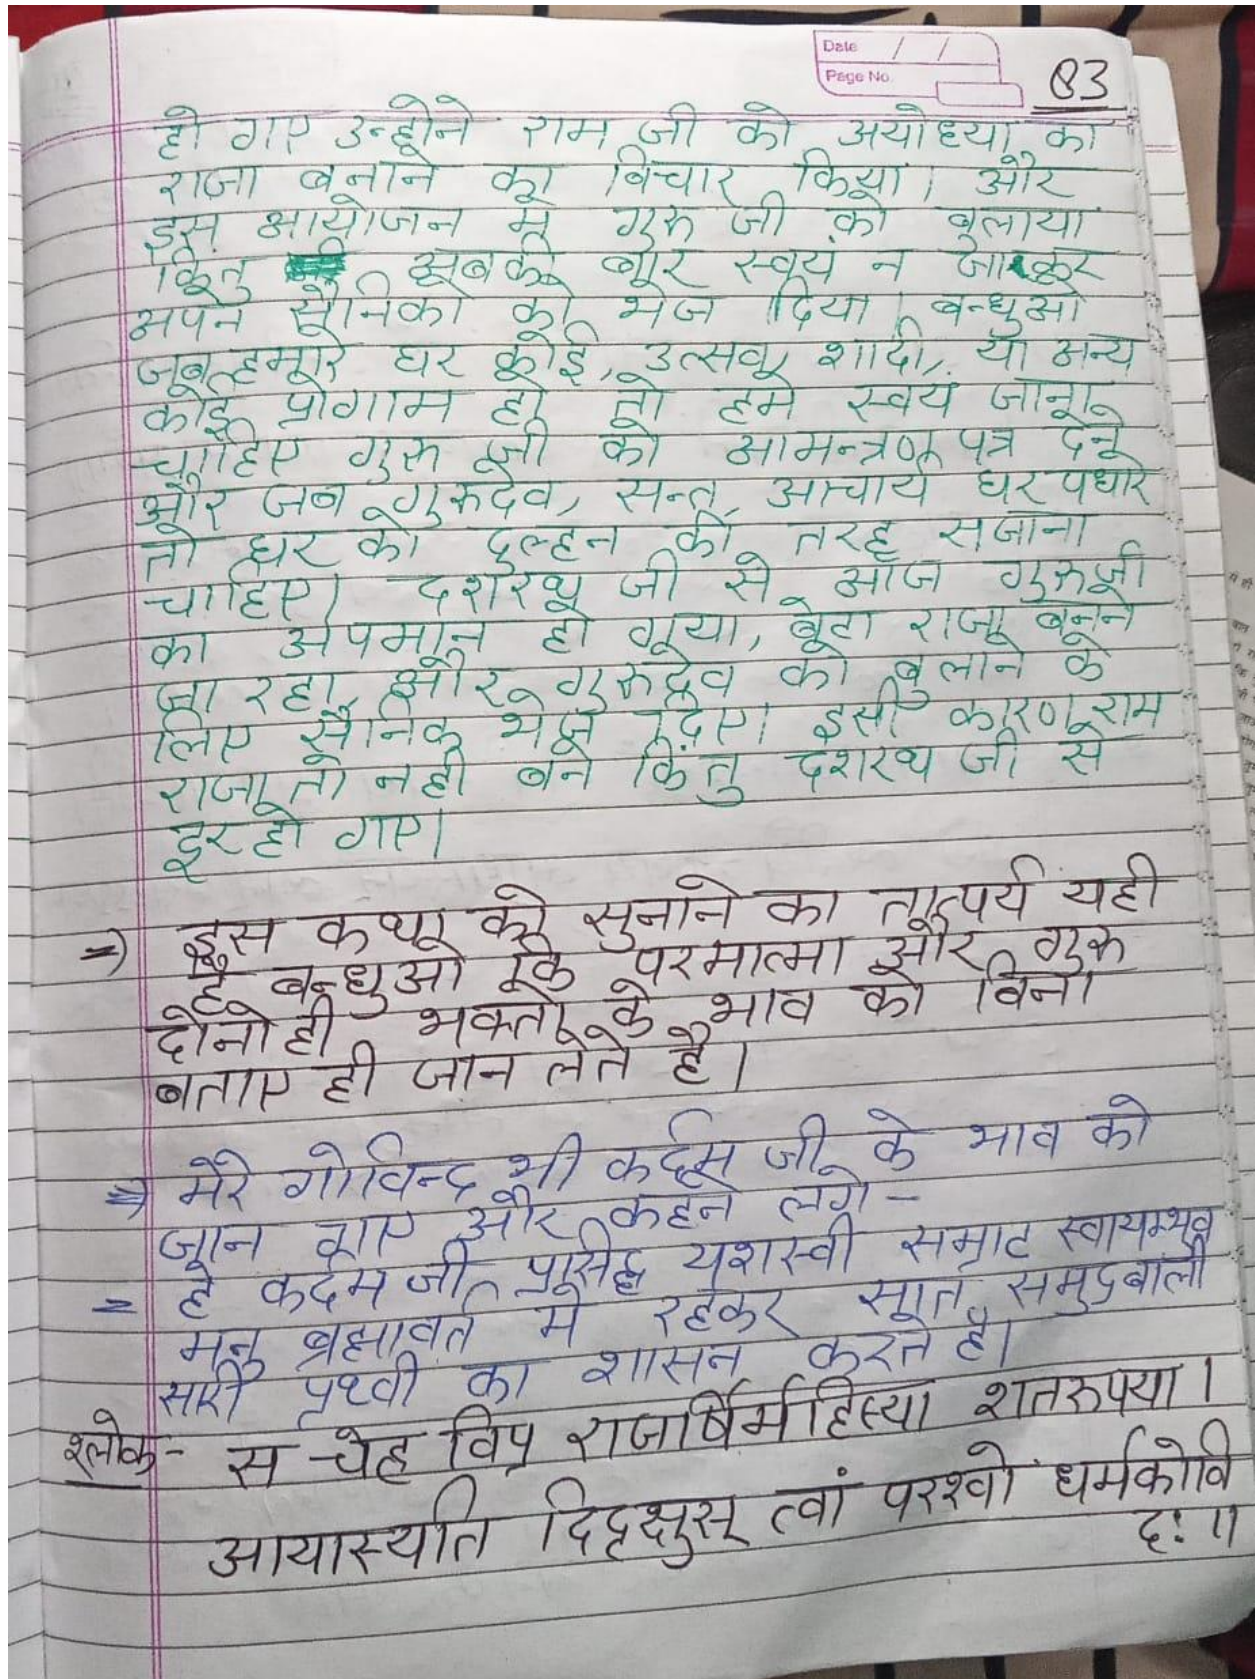 Date / /
Page No.
83
हो गए उन्होने राम जी को अयोध्या का
राजा बनाने का विचार किया। और
इस आयोजन मे गुरु जी को बुलाया
किंतु अबकी बार स्वयं न जाकर
अपने सैनिको को भेज दिया। बन्धुओ
जब हमारे घर कोई, उत्सव, शादी, या अन्य
कोई प्रोगाम हो तो हमे स्वयं जाना
चाहिए गुरु जी को आमन्त्रण पत्र देने
और जब गुरुदेव, सन्त, आचार्य घर पधारे
तो घर को दुल्हन की तरह सजाना
चाहिए। दशरथ जी से आज गुरुजी
का अपमान हो गया, बेटा राजा बनने
जा रहा और गुरुदेव को बुलाने के
लिए सैनिक भेज दिए। इसी कारण राम
राजा तो नही बने किंतु दशरथ जी से
दूर हो गए।
⇒ इस कथा को सुनाने का तात्पर्य यही
है बन्धुओ कि परमात्मा और गुरु
दोनो ही भक्तो के भाव को बिना
बताए ही जान लेते है।
⇒ मेरे गोविन्द भी कर्दम जी के भाव को
जान गए और कहने लगे -
= हे कर्दम जी प्रसिद्ध यशस्वी सम्राट स्वायम्भुव
मनु ब्रह्मावर्त मे रहकर सात समुद्रवाली
सारी पृथ्वी का शासन करते है।
श्लोक - स चेह विप्र राजर्षिर्महिष्या शतरुपया।
आयास्यति दिदृक्षुस् त्वां परश्वो धर्मकोवि
दः॥